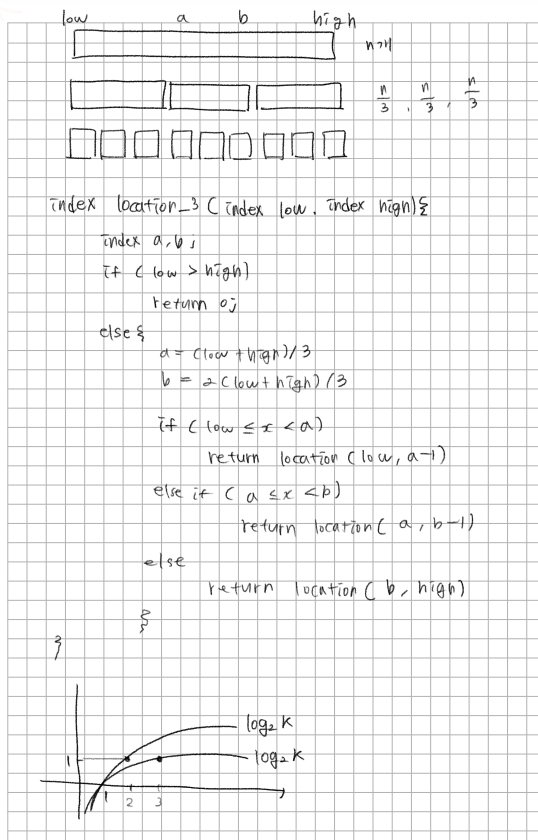 low a b high
n개
n/3 , n/3 , n/3
index location_3 ( index low, index high){
index a, b ;
if ( low > high)
return 0;
else {
a = (low + high)/3
b = 2(low + high)/3
if ( low ≤ x < a)
return location ( low, a-1)
else if ( a ≤ x < b)
return location( a, b-1)
else
return location ( b, high)
}
}
log₂ k
1 log₂ k
1 2 3